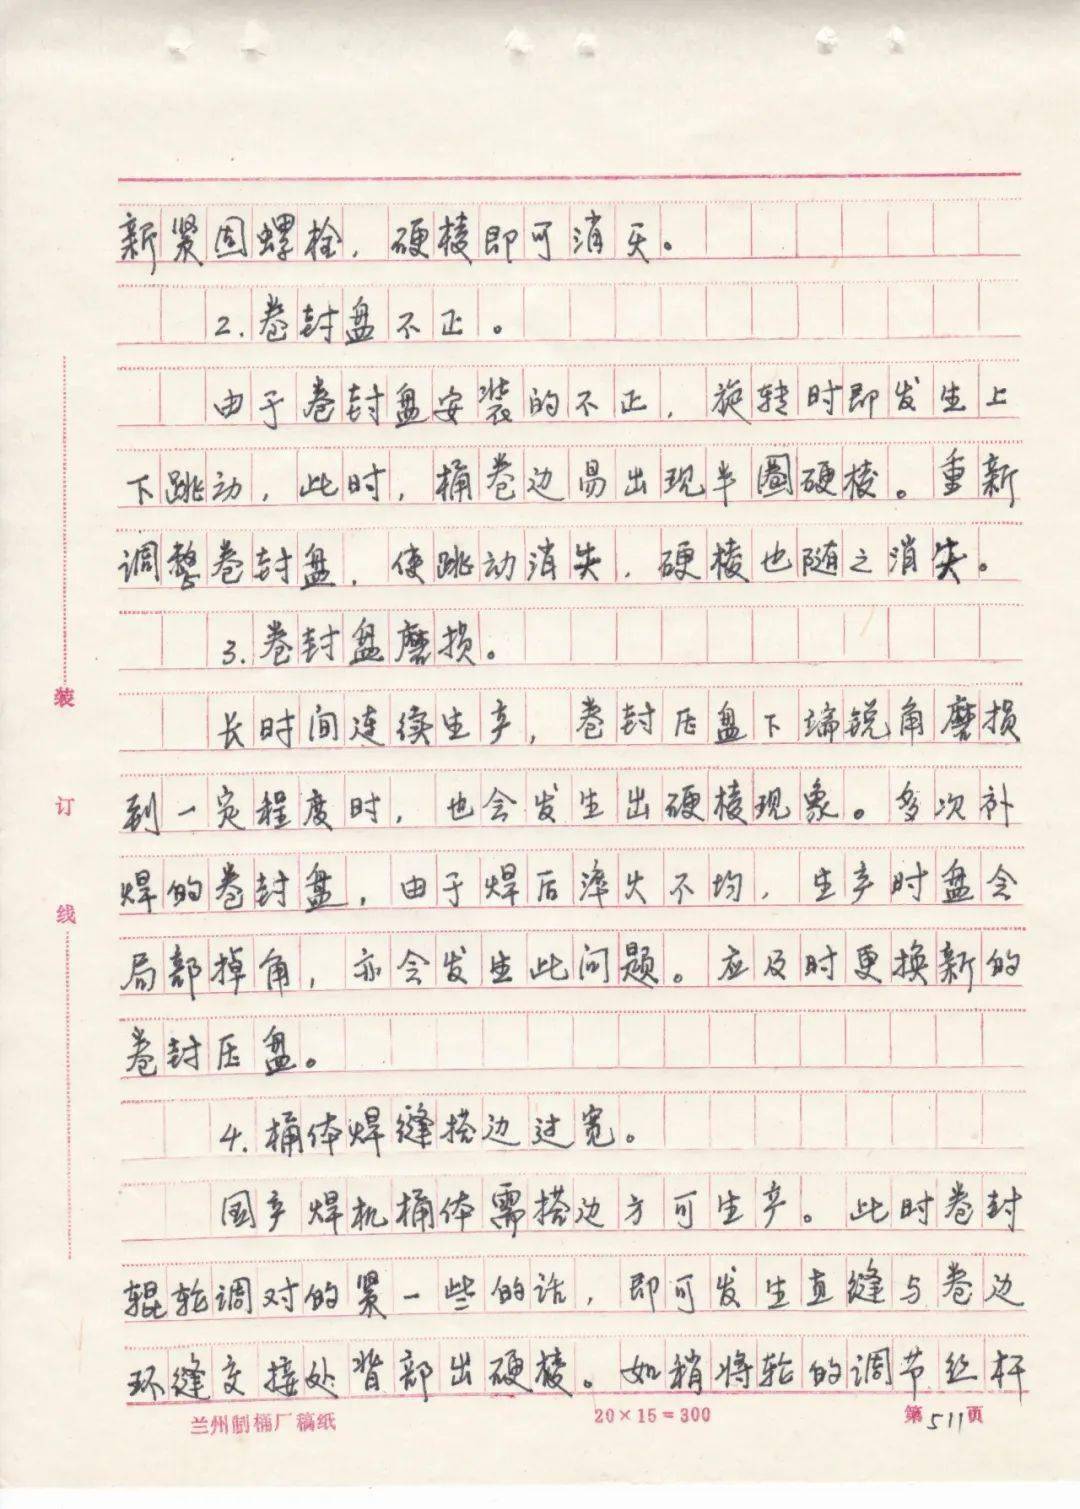 新紧固螺栓，硬棱即可消灭。
2.卷封盘不正。
由于卷封盘安装的不正，旋转时即发生上
下跳动，此时，桶卷边易出现半圈硬棱。重新
调整卷封盘，使跳动消失，硬棱也随之消失。
3.卷封盘磨损。
长时间连续生产，卷封压盘下端锐角磨损
到一定程度时，也会发生出硬棱现象。多次补
焊的卷封盘，由于焊后淬火不均，生产时盘会
局部掉角，亦会发生此问题。应及时更换新的
卷封压盘。
4.桶体焊缝搭边过宽。
国产焊机桶体需搭边方可生产。此时卷封
辊轮调对的紧一些的话，即可发生直缝与卷边
环缝交接处背部出硬棱。如稍将轮的调节丝杆
装
订
线
兰州制桶厂稿纸
20×15=300
第511页